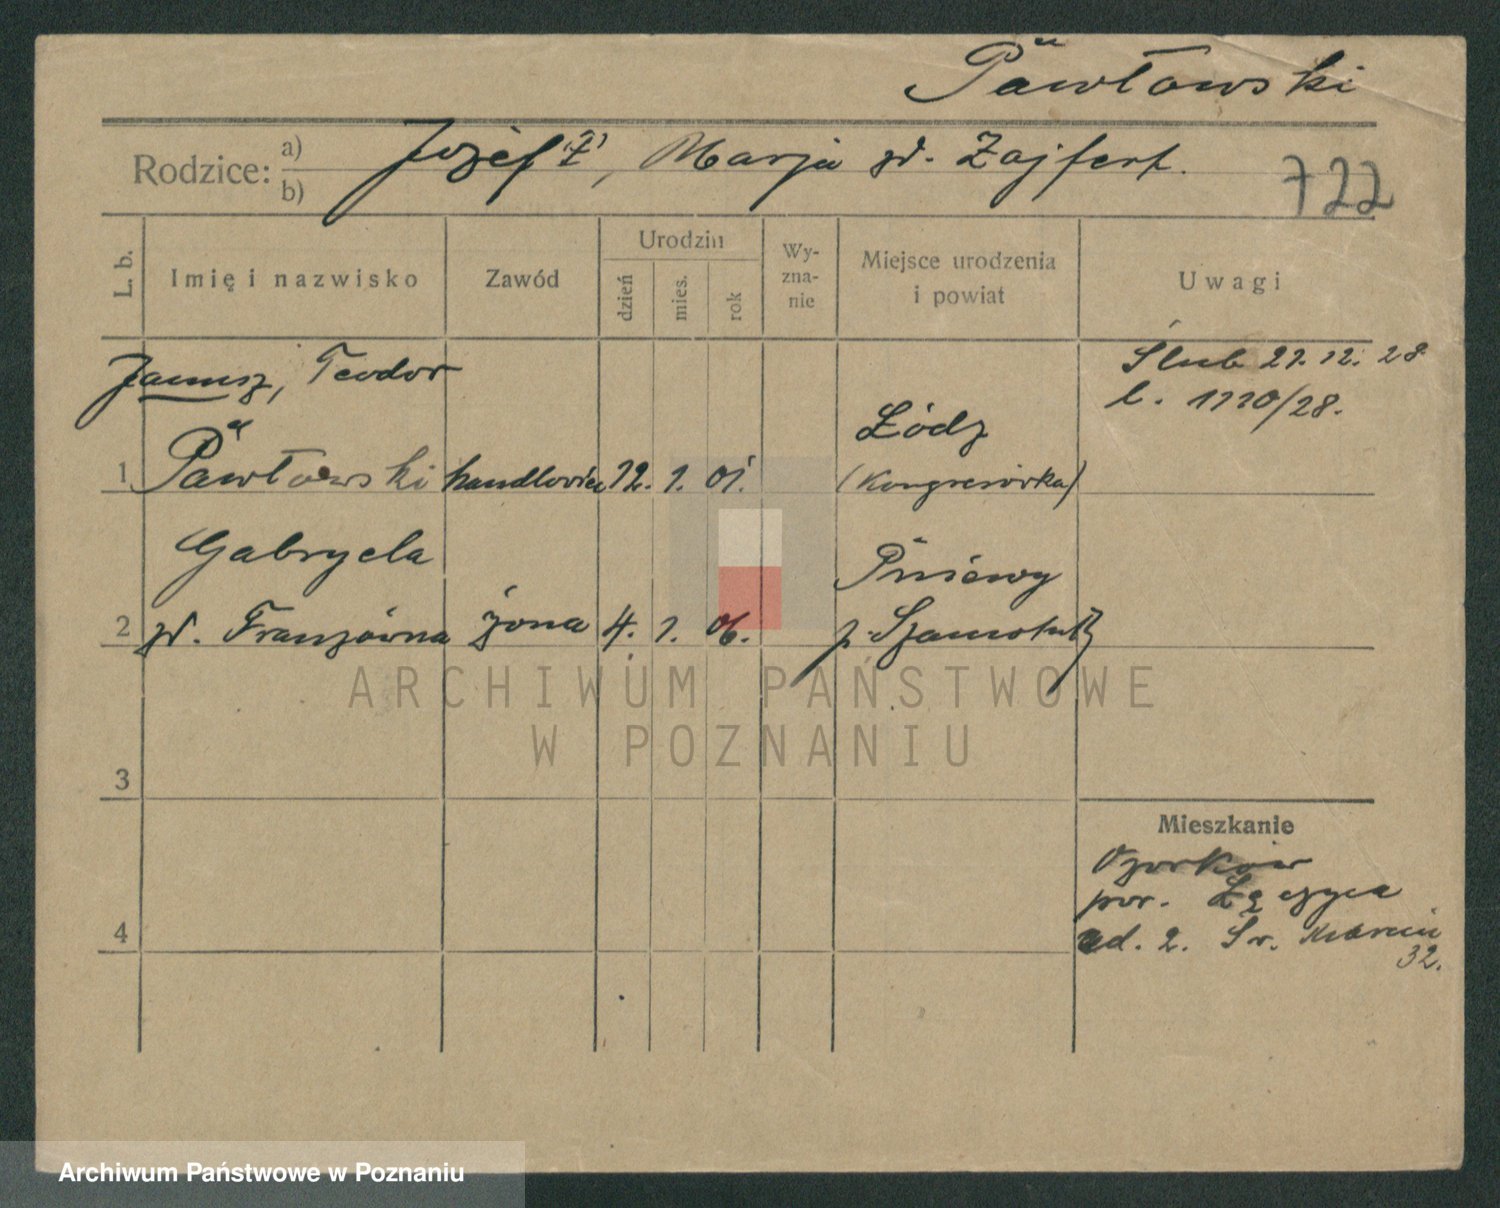 Pawłowski
Rodzice: a) b) Józef, Marja zd. Zajfert.
722
L. b.
Imię i nazwisko
Zawód
Urodzin
dzień
mies.
rok
Wy-
zna-
nie
Miejsce urodzenia
i powiat
Uwagi
Janusz, Teodor
Ślub 27. 12. 28
l. 1110/28.
Łódz
1 Pawłowski handlowiec 12. 1. 01. (Kongresówka)
Gabryela
Pniewy
2 zd. Franzówna żona 4. 1. 06. p. Szamotuły
ARCHIWUM PAŃSTWOWE
W POZNANIU
3
Mieszkanie
Ozorków
pow. Łęczyca
4
ad. 2. Św. Marcin
32.
Archiwum Państwowe w Poznaniu